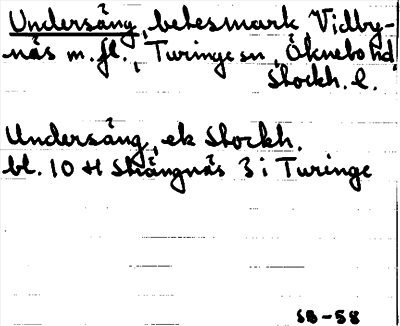 Undersång, betesmark Vidby-
näs m.fl., Turinge sn, Öknebo hd,
Stockh. l.
Undersång, ek Stockh.
bl. 10 H Strängnäs 3 i Turinge
SB-58